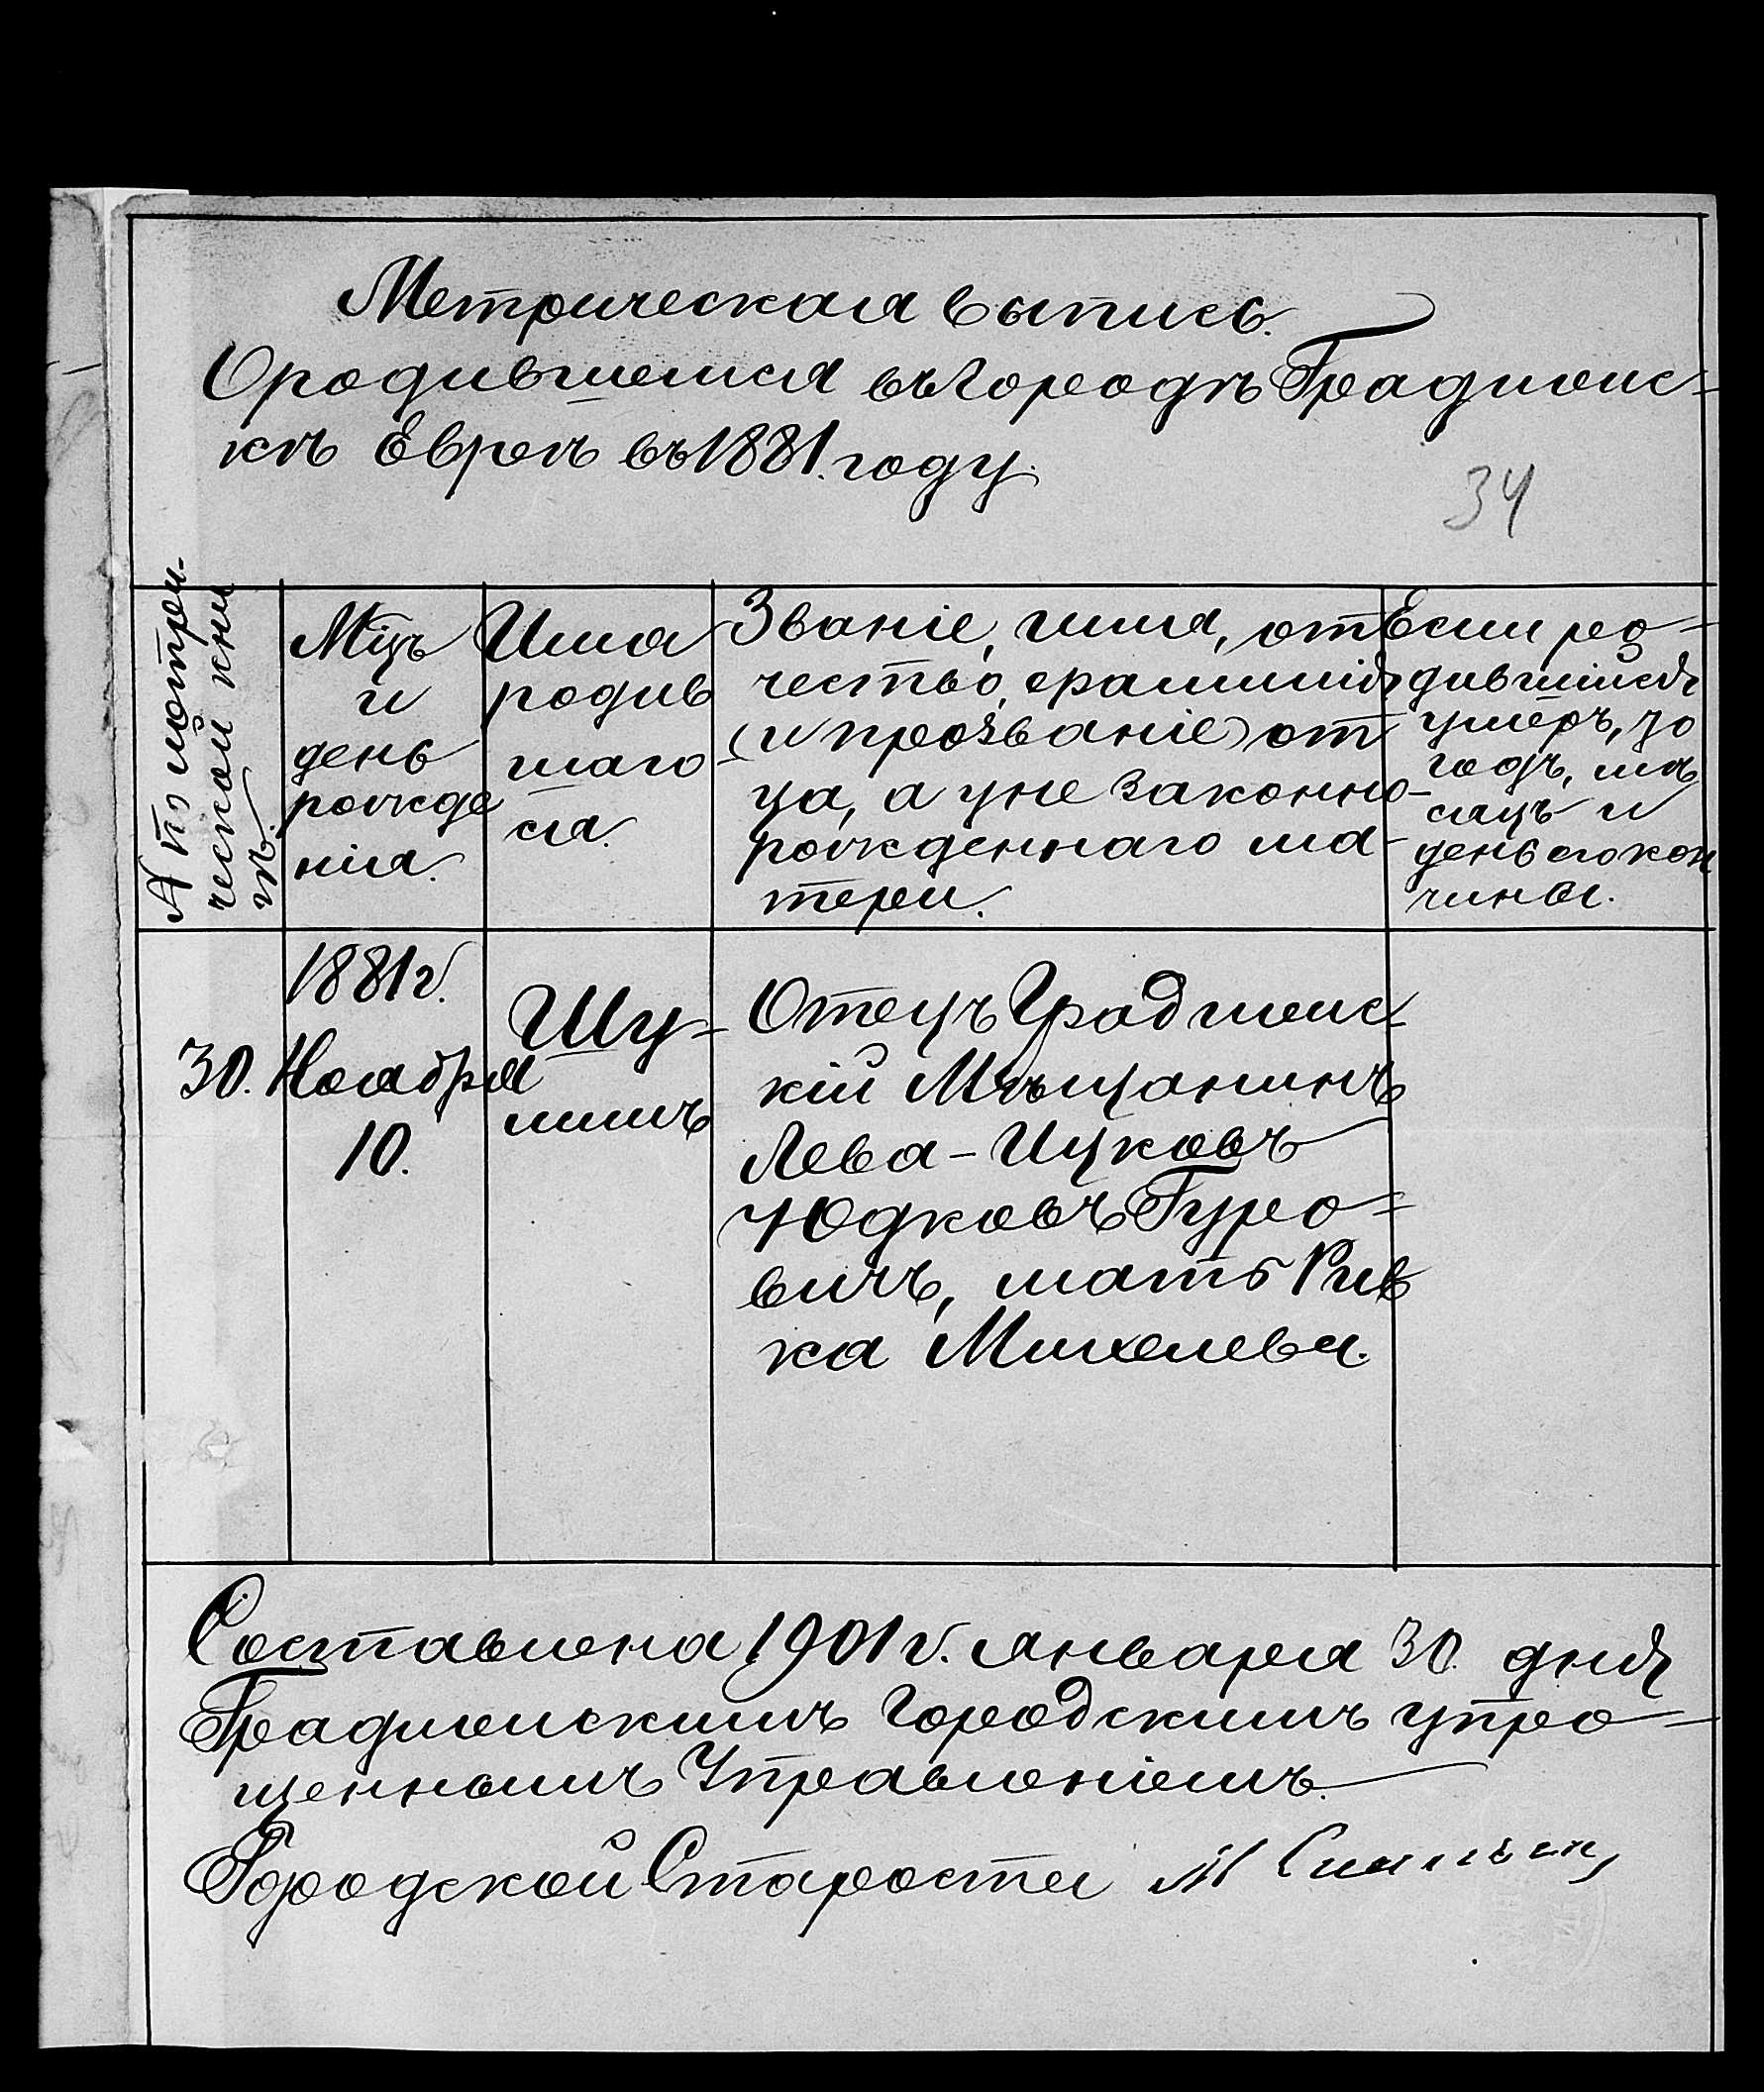 Метрическая выпись.
О родившемся въ городѣ Градижс-
кѣ Евреѣ въ 1881. году.
34
№ по метри-
ческой кни
гѣ.
Мѣцъ
и
день
рожде
нія.
Имя
родив
шаго-
ся.
Званіе, имя, от
чество, фамилія
(и прозваніе) от
ца, а у не законно-
рожденнаго ма-
тери.
Если ро-
дившійся
умеръ, то
годъ, мѣ
сяцъ и
день его кон
чины.
30.
1881 г.
Ноября
10.
Шу-
лимъ
Отецъ Градижс-
кій Мѣщанинъ
Лева-Ицковъ
Юдковъ Гуро-
вичъ, мать Рив
ка Михелева.
Составлена 1901 г. января 30. дня
Градижскимъ Городскимъ упро-
щеннымъ Управленіемъ.
Городской Староста М